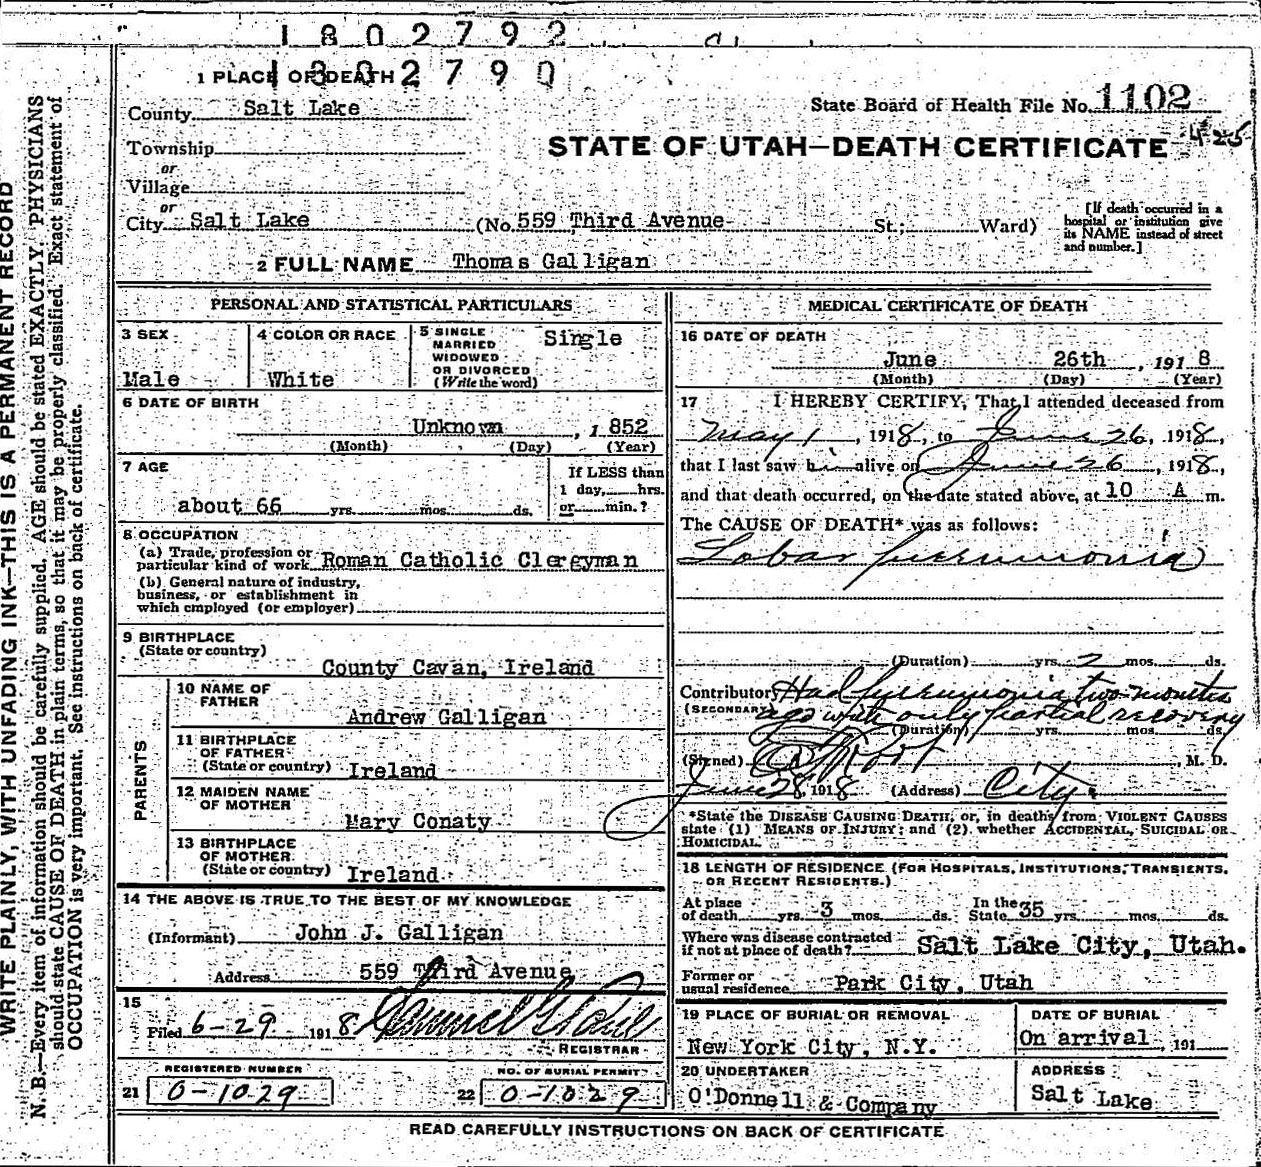 1802792
1302790
1 PLACE OF DEATH
County Salt Lake
State Board of Health File No. 1102
Township
STATE OF UTAH—DEATH CERTIFICATE 425
or
Village
or
City Salt Lake (No. 559 Third Avenue St.; Ward)
[If death occurred in a
hospital or institution give
its NAME instead of street
and number.]
2 FULL NAME Thomas Galligan
PERSONAL AND STATISTICAL PARTICULARS
3 SEX
Male
4 COLOR OR RACE
White
5 SINGLE
MARRIED
WIDOWED
OR DIVORCED
(Write the word)
Single
6 DATE OF BIRTH
Unknown , 1852
(Month) (Day) (Year)
7 AGE
about 66 yrs. mos. ds.
If LESS than
1 day, hrs.
or min.?
8 OCCUPATION
(a) Trade, profession or
particular kind of work Roman Catholic Clergyman
(b) General nature of industry,
business, or establishment in
which employed (or employer)
9 BIRTHPLACE
(State or country)
County Cavan, Ireland
PARENTS
10 NAME OF
FATHER
Andrew Galligan
11 BIRTHPLACE
OF FATHER
(State or country) Ireland
12 MAIDEN NAME
OF MOTHER
Mary Conaty
13 BIRTHPLACE
OF MOTHER
(State or country) Ireland
14 THE ABOVE IS TRUE TO THE BEST OF MY KNOWLEDGE
(Informant) John J. Galligan
Address 559 Third Avenue
15
Filed 6-29 1918
REGISTRAR
REGISTERED NUMBER
21 0-1029
NO. OF BURIAL PERMIT
22 0-1029
MEDICAL CERTIFICATE OF DEATH
16 DATE OF DEATH
June 26th , 1918
(Month) (Day) (Year)
17 I HEREBY CERTIFY, That I attended deceased from
May 1 , 1918, to June 26, 1918,
that I last saw him alive on June 26 , 1918,
and that death occurred, on the date stated above, at 10 A m.
The CAUSE OF DEATH* was as follows:
Lobar pneumonia
(Duration) yrs. 2 mos. ds.
Contributory Had pneumonia two months
(SECONDARY) ago with only partial recovery
(Duration) yrs. mos. ds.
(Signed) , M. D.
June 28, 1918 (Address) City.
*State the DISEASE CAUSING DEATH, or, in deaths from VIOLENT CAUSES
state (1) MEANS OF INJURY; and (2) whether ACCIDENTAL, SUICIDAL OR
HOMICIDAL.
18 LENGTH OF RESIDENCE (FOR HOSPITALS, INSTITUTIONS, TRANSIENTS,
OR RECENT RESIDENTS.)
At place
of death yrs. 3 mos. ds. In the
State 35 yrs. mos. ds.
Where was disease contracted
if not at place of death? Salt Lake City, Utah.
Former or
usual residence Park City, Utah
19 PLACE OF BURIAL OR REMOVAL
New York City, N.Y.
DATE OF BURIAL
On arrival 191
20 UNDERTAKER
O'Donnell & Company
ADDRESS
Salt Lake
READ CAREFULLY INSTRUCTIONS ON BACK OF CERTIFICATE
WRITE PLAINLY, WITH UNFADING INK—THIS IS A PERMANENT RECORD
N. B.—Every item of information should be carefully supplied. AGE should be stated EXACTLY. PHYSICIANS
should state CAUSE OF DEATH in plain terms, so that it may be properly classified. Exact statement of
OCCUPATION is very important. See instructions on back of certificate.